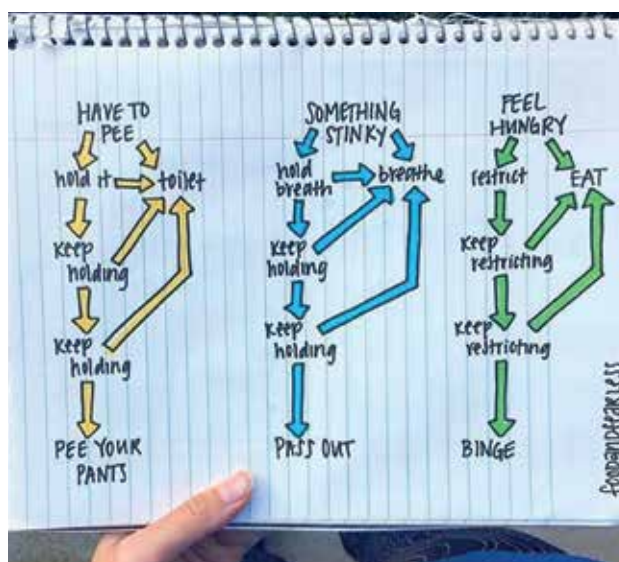 HAVE TO
PEE
hold it
toilet
keep
holding
keep
holding
PEE YOUR
PANTS
SOMETHING
STINKY
hold
breath
breathe
keep
holding
keep
holding
PASS OUT
FEEL
HUNGRY
restrict
EAT
keep
restricting
keep
restricting
BINGE
foodandfearless